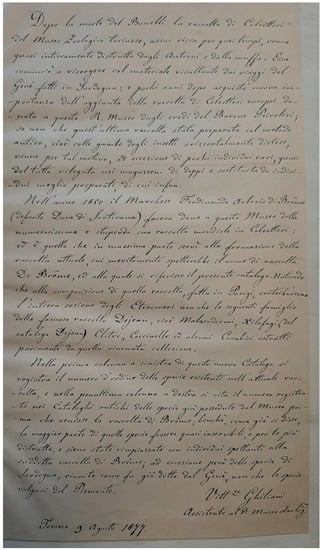 Dopo la morte del Bonelli la raccolta di Coleotteri
del Museo Zoologico torinese, assai ricca per quei tempi, venne
quasi interamente distrutta dagli Antreni e dalla muffa. Essa
cominciò a risorgere col materiale risultante dai viaggi del
Gené fatti in Sardegna: e pochi anni dopo acquistò nuova im-
portanza dall'aggiunta della raccolta di Coleotteri europei do-
nata a questo R. Museo dagli eredi del Barone Peiroleri;
se non che quest'ultima raccolta stata preparata col metodo
antico, cioè colle gambe degli insetti orizzontalmente distese,
venne per tal motivo, ad eccezione di pochi individui rari, quasi
del tutto relegata nei magazzeni di doppi e sostituita da indivi-
dui meglio preparati di cui infra.
Nell'anno 1850 il Marchese Ferdinando Arborio di Brême
(defunto Duca di Sartirana) faceva dono a questo Museo della
numerosissima e stupenda sua raccolta mondiale in Coleotteri:
ed è quella che in massima parte servì alla formazione della
raccolta attuale, cui meritamente spetterebbe il nome di raccolta
De Brême, ed alla quale si riferisce il presente catalogo. Notando
che alla composizione di quella raccolta, fatta in Parigi, contribuirono
l'intera sezione degli Eteromeri non che le seguenti famiglie
della famosa raccolta Dejean, cioè Malacodermi, Xilofagi (del
catalogo Dejean) Clitri, Coccinelle ed alcuni Carabici estratti
parimenti da quella rinomata collezione.
Nella prima colonna a sinistra di questo nuovo Catalogo si
registra il numero d'ordine delle specie esistenti nell'attuale rac-
colta, e nella penultima colonna a destra si cita il numero registra-
to nei Cataloghi antichi delle specie già possedute dal Museo pri-
ma che venisse la raccolta di Brême, benchè, come già si disse,
la maggior parte di quelle specie fossero quasi inservibili e per lo più
distrutte, e siano state rimpiazzate con individui spettanti alla
suddetta raccolta di Brême; ad eccezione però delle specie di
Sardegna, rinvenute come fu già detto dal Gené, non che le specie
volgari del Piemonte.
Vitt.o Ghiliani
Assistente al R. Museo
Torino 9. Agosto 1877.